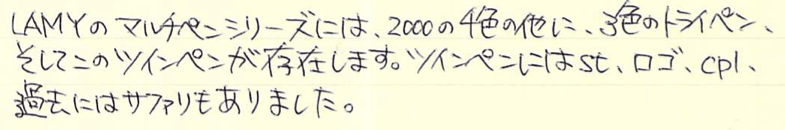 LAMYのマルチペンシリーズには、2000の4色の他に、3色のトライペン、
そしてこのツインペンが存在します。ツインペンにはst、ロゴ、cp1、
過去にはサファリもありました。